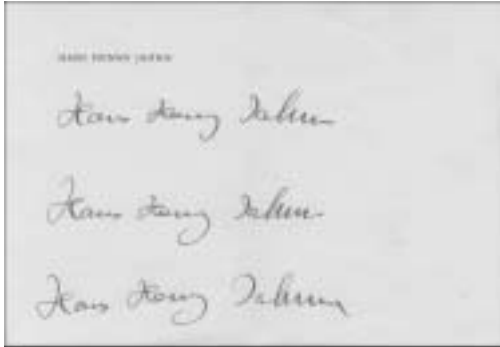 HANS HENNY JAHNN
Hans Henny Jahnn
Hans Henny Jahnn
Hans Henny Jahnn